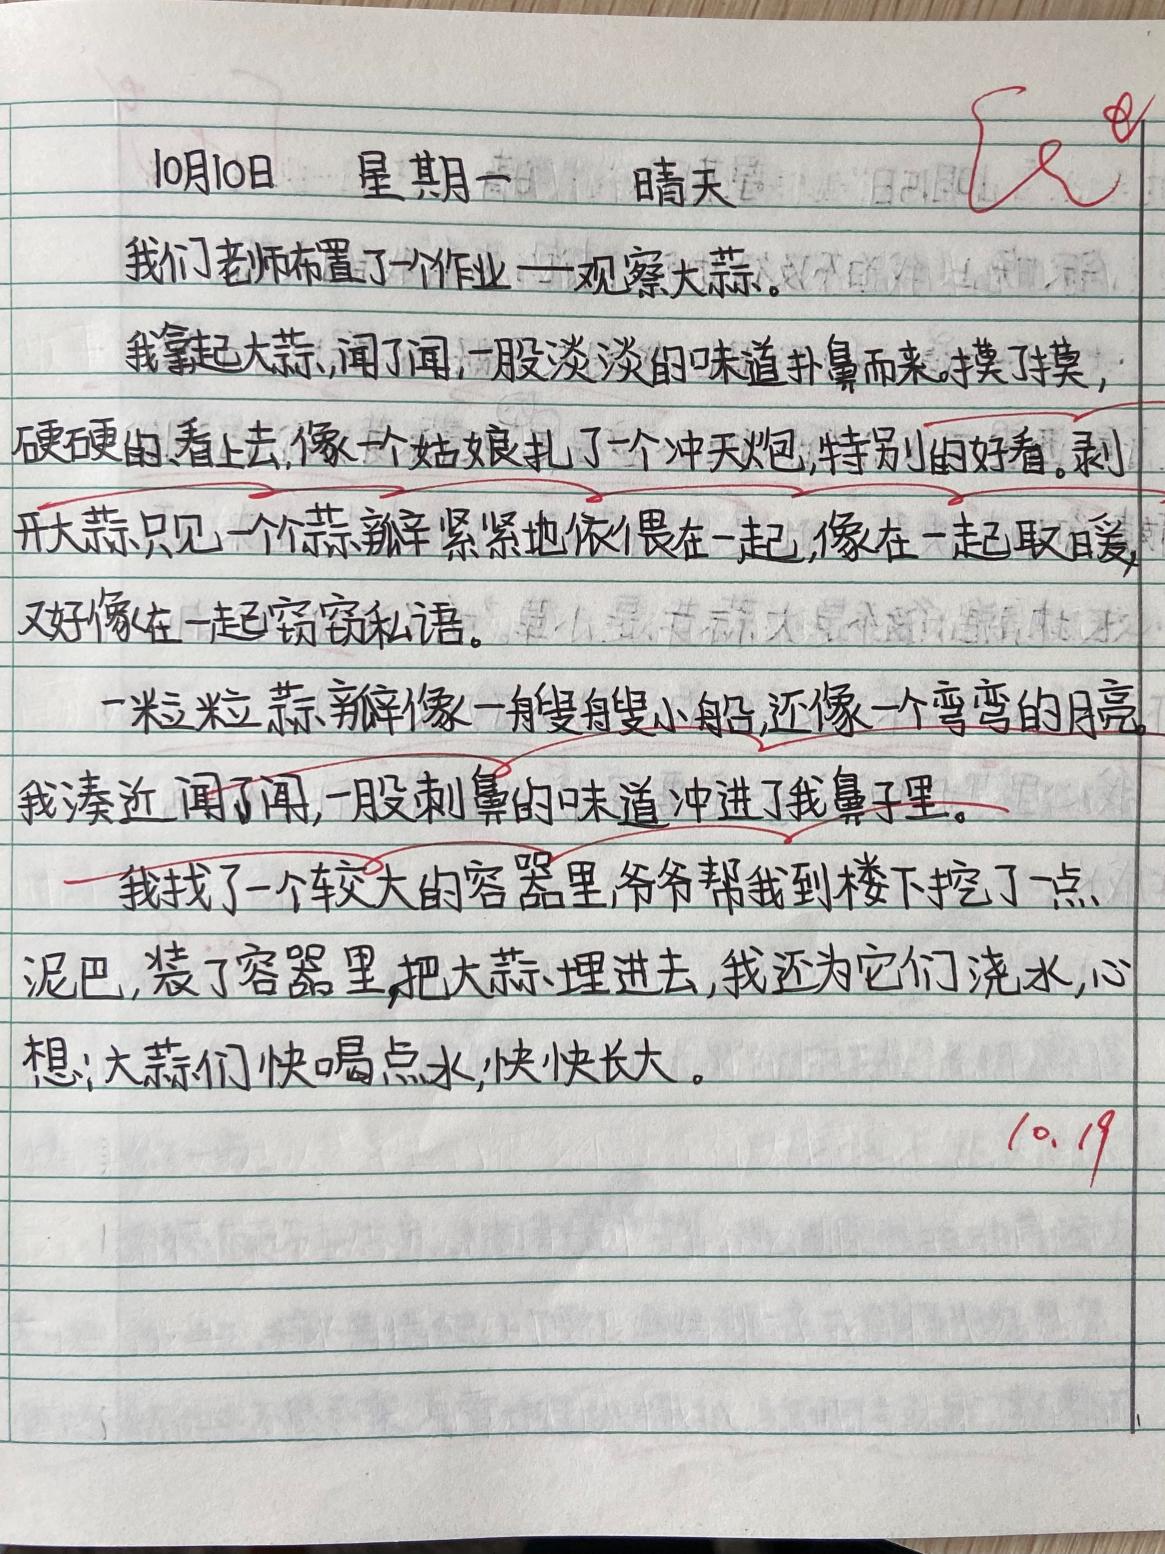 10月10日 星期一 晴天
我们老师布置了一个作业——观察大蒜。
我拿起大蒜,闻了闻,一股淡淡的味道扑鼻而来。摸了摸,
硬硬的、看上去,像一个姑娘扎了一个冲天炮,特别的好看。剥
开大蒜只见一个个蒜瓣紧紧地依偎在一起,像在一起取暖,
又好像在一起窃窃私语。
一粒粒蒜瓣像一艘艘小船,还像一个弯弯的月亮。
我凑近闻了闻,一股刺鼻的味道冲进了我鼻子里。
我找了一个较大的容器里,爷爷帮我到楼下挖了一点
泥巴,装了容器里,把大蒜埋进去,我还为它们浇水,心
想:大蒜们快喝点水,快快长大。
10.19